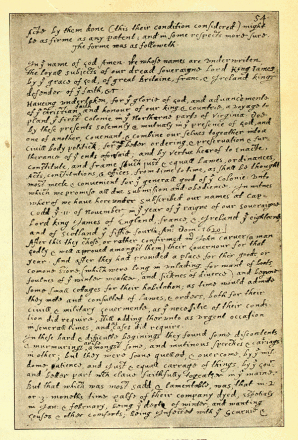 54
by them done (this their condition considered) might
be as firme as any patent, and in some respects more sure.
The forme was as followeth
In yͤ name of God Amen. We whose names are underwriten,
the loyall subjects of our dread soveraigne Lord King James,
by yͤ grace of God, of great Britaine, franc, & Ireland king,
defender of yͤ faith, &c
Haveing undertaken, for yͤ glorie of God, and advancemente
of yͤ christian faith and honour of our king & countrie, a voyage to
plant yͤ first colonie in yͤ Northerne parts of Virginia. Doe
by these presents solemnly & mutualy in yͤ presence of God, and
one of another, covenant, & combine our selves togeather into a
civill body politick, for our better ordering, & preservation & fur-
therance of yͤ ends aforesaid; and by vertue hearof to enacte,
constitute, and frame such just & equall lawes, ordinances,
acts, constitutions, & offices, from time to time, as shall be thought
most meete & convenient for yͤ generall good of yͤ Colonie: unto
which we promise all due submission and obedience. In witnes
wherof we have hereunder subscribed our names at Cap-
Codd yͤ .11. of November, in yͤ year of yͤ raigne of our soveraigne
Lord king James of England, france, & Ireland yͤ eighteenth
and of Scotland yͤ fiftie fourth. Ano: Dom. 1620.
After this they chose, or rather confirmed mr John Carver (a man
godly & well approved amongst them) their Governour for that
year. And after they had provided a place for their goods, or
comone store, (which were long in unlading for want of boats,
foulnes of yͤ winter weather, and sicknes of diverce) and begune
some small cottages for their habitation; as time would admitte
they mette and consulted of lawes, & orders, both for their
civill & military Govermente, as yͤ necessitie of their condi-
tion did require, still adding therunto as urgent occasion
in severall times, and as cases did require.
In these hard & difficulte beginings they found some discontents
& murmurings arise amongst some, and mutinous speeches & carriags
in other; but they were soone quelled, & overcome, by yͤ wis-
dome, patience, and just & equall carrage of things, by yͤ Govr
and better part wch clave faithfully togeather in yͤ maine.
But that which was most sadd, & lamentable, was, that in 2
or 3 moneths time halfe of their company dyed, espetialy
in Jan: & february, being yͤ depth of winter, and wanting
houses & other comforts; being infected with yͤ scurvie &